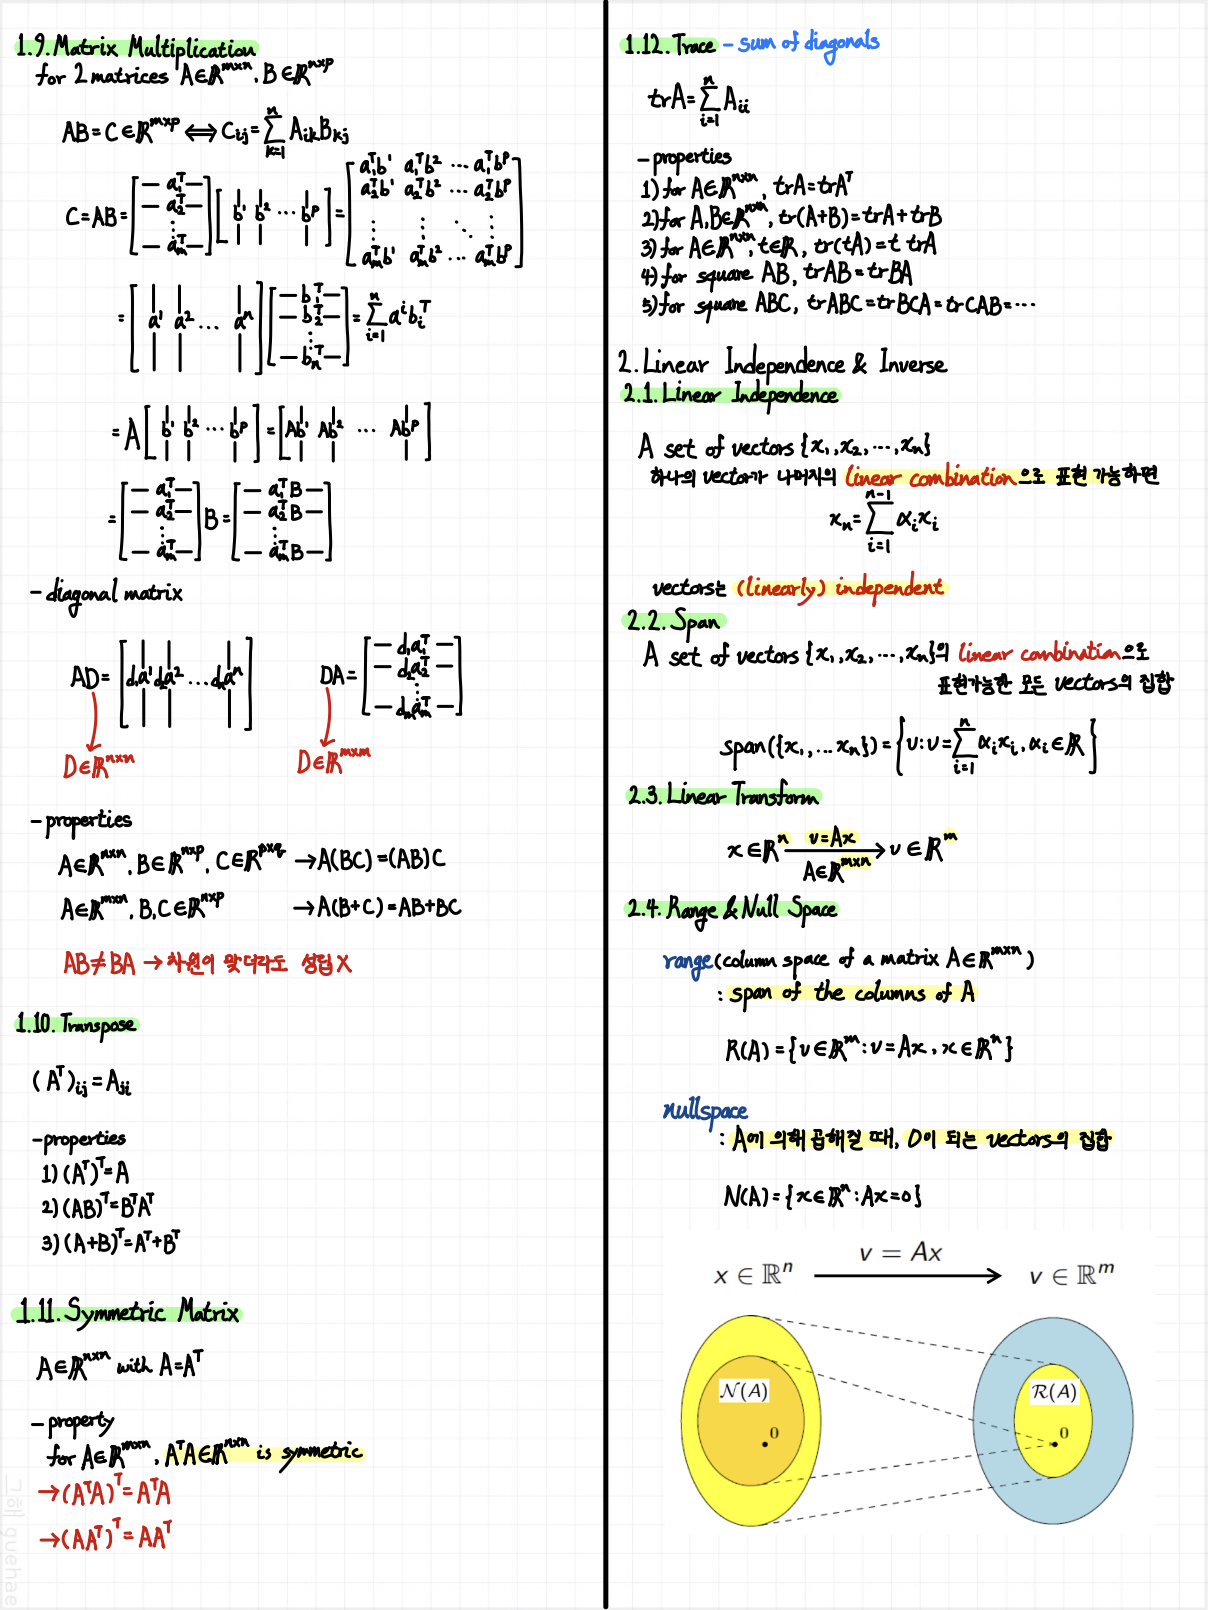 1.9. Matrix Multiplication
for 2 matrices A∈ℝ^{m×n}, B∈ℝ^{n×p}
AB = C∈ℝ^{m×p} ⟺ C_{ij} = Σ_{k=1}^{n} A_{ik}B_{kj}
C = AB = [— a_1^T —; — a_2^T —; ⋮; — a_m^T —] [b^1 b^2 ⋯ b^p] = [a_1^Tb^1 a_1^Tb^2 ⋯ a_1^Tb^p; a_2^Tb^1 a_2^Tb^2 ⋯ a_2^Tb^p; ⋮ ⋮ ⋱ ⋮; a_m^Tb^1 a_m^Tb^2 ⋯ a_m^Tb^p]
= [a^1 a^2 ⋯ a^n] [— b_1^T —; — b_2^T —; ⋮; — b_n^T —] = Σ_{i=1}^{n} a^i b_i^T
= A [b^1 b^2 ⋯ b^p] = [Ab^1 Ab^2 ⋯ Ab^p]
= [— a_1^T —; — a_2^T —; ⋮; — a_m^T —] B = [— a_1^T B —; — a_2^T B —; ⋮; — a_m^T B —]
- diagonal matrix
AD = [d_1a^1 d_2a^2 ⋯ d_na^n]
DA = [— d_1a_1^T —; — d_2a_2^T —; ⋮; — d_ma_m^T —]
D∈ℝ^{n×n}
D∈ℝ^{m×m}
- properties
A∈ℝ^{m×n}, B∈ℝ^{n×p}, C∈ℝ^{p×q} → A(BC) = (AB)C
A∈ℝ^{m×n}, B,C∈ℝ^{n×p} → A(B+C) = AB+BC
AB≠BA → 차원이 맞더라도 성립 X
1.10. Transpose
(A^T)_{ij} = A_{ji}
- properties
1) (A^T)^T = A
2) (AB)^T = B^TA^T
3) (A+B)^T = A^T+B^T
1.11. Symmetric Matrix
A∈ℝ^{n×n} with A = A^T
- property
for A∈ℝ^{m×n}, A^TA∈ℝ^{n×n} is symmetric
→ (A^TA)^T = A^TA
→ (AA^T)^T = AA^T
그해 guehae
1.12. Trace - sum of diagonals
trA = Σ_{i=1}^{n} A_{ii}
- properties
1) for A∈ℝ^{n×n}, trA = trA^T
2) for A,B∈ℝ^{n×n}, tr(A+B) = trA+trB
3) for A∈ℝ^{n×n}, t∈ℝ, tr(tA) = t trA
4) for square AB, trAB = trBA
5) for square ABC, trABC = trBCA = trCAB = ⋯
2. Linear Independence & Inverse
2.1. Linear Independence
A set of vectors {x_1, x_2, ⋯, x_n}
하나의 vector가 나머지의 linear combination으로 표현 가능하면
x_n = Σ_{i=1}^{n-1} α_i x_i
vectors는 (linearly) independent
2.2. Span
A set of vectors {x_1, x_2, ⋯, x_n}의 linear combination으로
표현가능한 모든 vectors의 집합
span({x_1, … x_n}) = {v : v = Σ_{i=1}^{n} α_i x_i, α_i∈ℝ}
2.3. Linear Transform
x∈ℝ^n —v=Ax / A∈ℝ^{m×n}→ v∈ℝ^m
2.4. Range & Null Space
range (column space of a matrix A∈ℝ^{m×n})
: span of the columns of A
R(A) = {v∈ℝ^m : v = Ax, x∈ℝ^n}
nullspace
: A에 의해 곱해질 때, 0이 되는 vectors의 집합
N(A) = {x∈ℝ^n : Ax = 0}
v = Ax
x ∈ ℝ^n ⟶ v ∈ ℝ^m
𝒩(A)
ℛ(A)
0
0